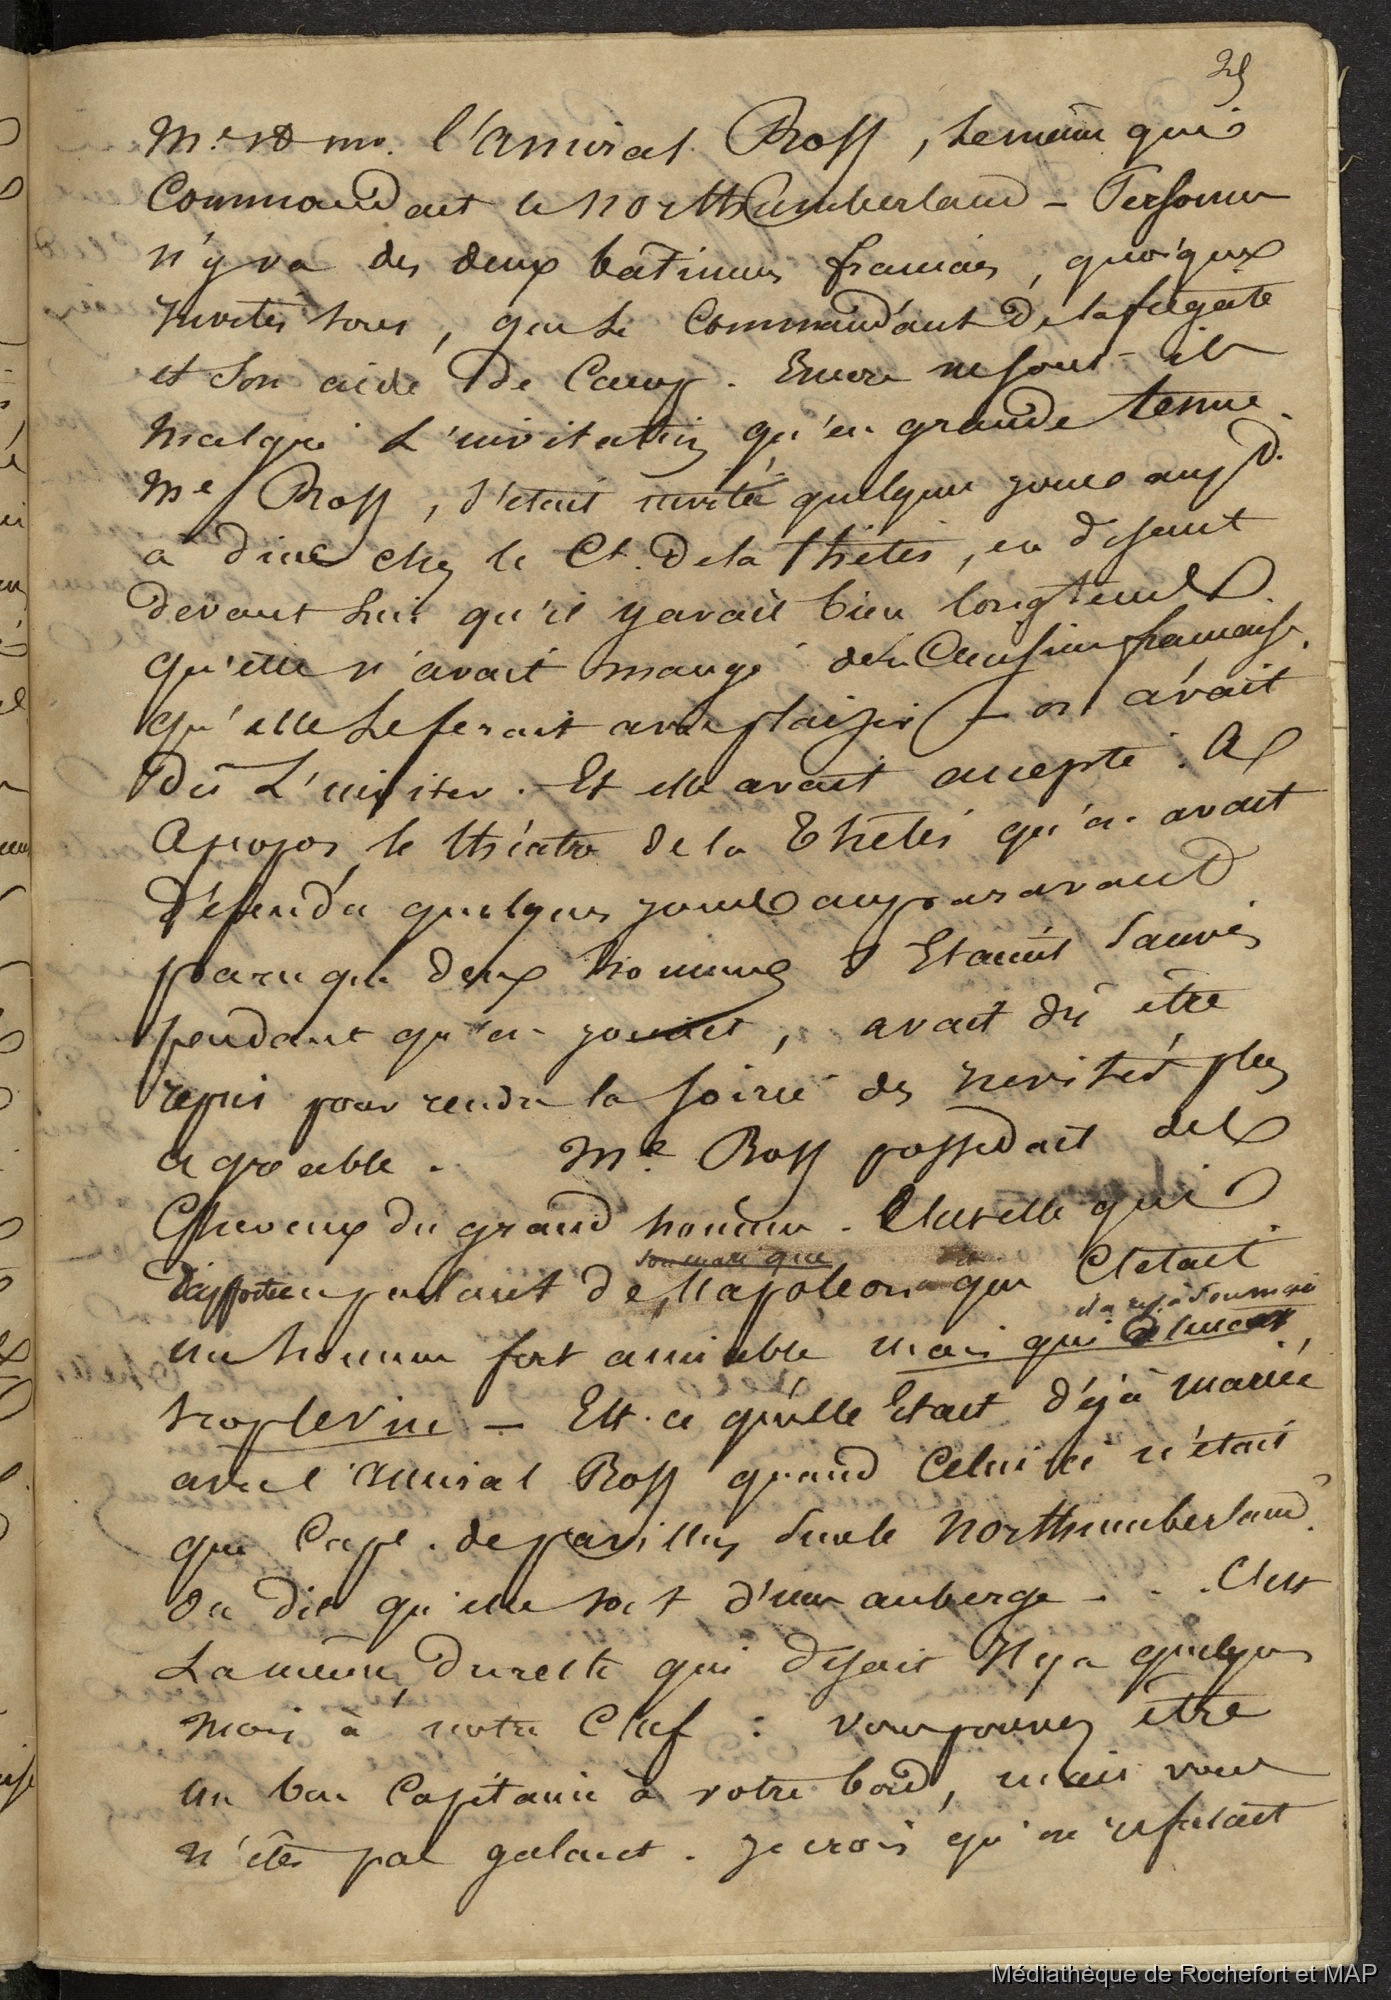 25
Me et mr. l'amiral Ross, le même qui
Commandait le Northumberland – Personne
n'y va des deux bâtimens français, quoiqu'eux
invités tous, que le Commandant de la frégate
et son aide de Camp. Encore ne sont-ils
malgré l'invitation qu'en grande tenue.
Me Ross, s'était invitée quelques jours aup d.
à diner chez le Ct. de la Thétis, en disant
devant lui qu'il y avait bien longtems
qu'elle n'avait mangé de la Cuisine française.
qu'elle le ferait avec plaisir – on avait
dû l'inviter. Et elle avait accepté. A
Apropos le théâtre de la Thétis qu'on avait
défendu quelques jours auparavant
parce que deux hommes s'Etaient sauvés
pendant qu'on jouait, avait dû être
repris pour rendre la soirée des invités plus
agréable. Me Ross possedait des
Cheveux du grand homme. C'est elle qui
son mari que
disait en parlant de Napoleon que C'etait
il a ruiné son mari
un homme fort aimable mais qui aimait
trop le vin – Est-ce qu'elle Etait déjà mariée
avec l'amiral Ross quand Celui-ci n'était
que Capt. de pavillon sur le Northumberland?
On dit qu'elle sort d'une auberge - . . C'est
La même, du reste qui disait Il y a quelques
mois à notre Chef : vous pouvez être
un bon Capitaine à votre bord, mais vous
n'êtes pas galant. Je crois qu'on refusait
Médiathèque de Rochefort et MAP